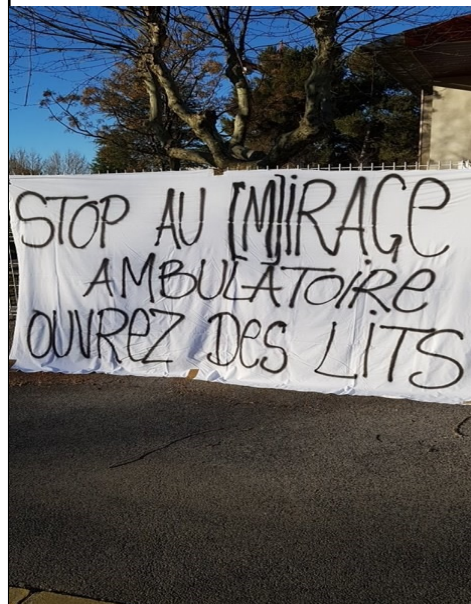 STOP AU [M]IRAGE
AMBULATOIRE
OUVREZ DES LITS